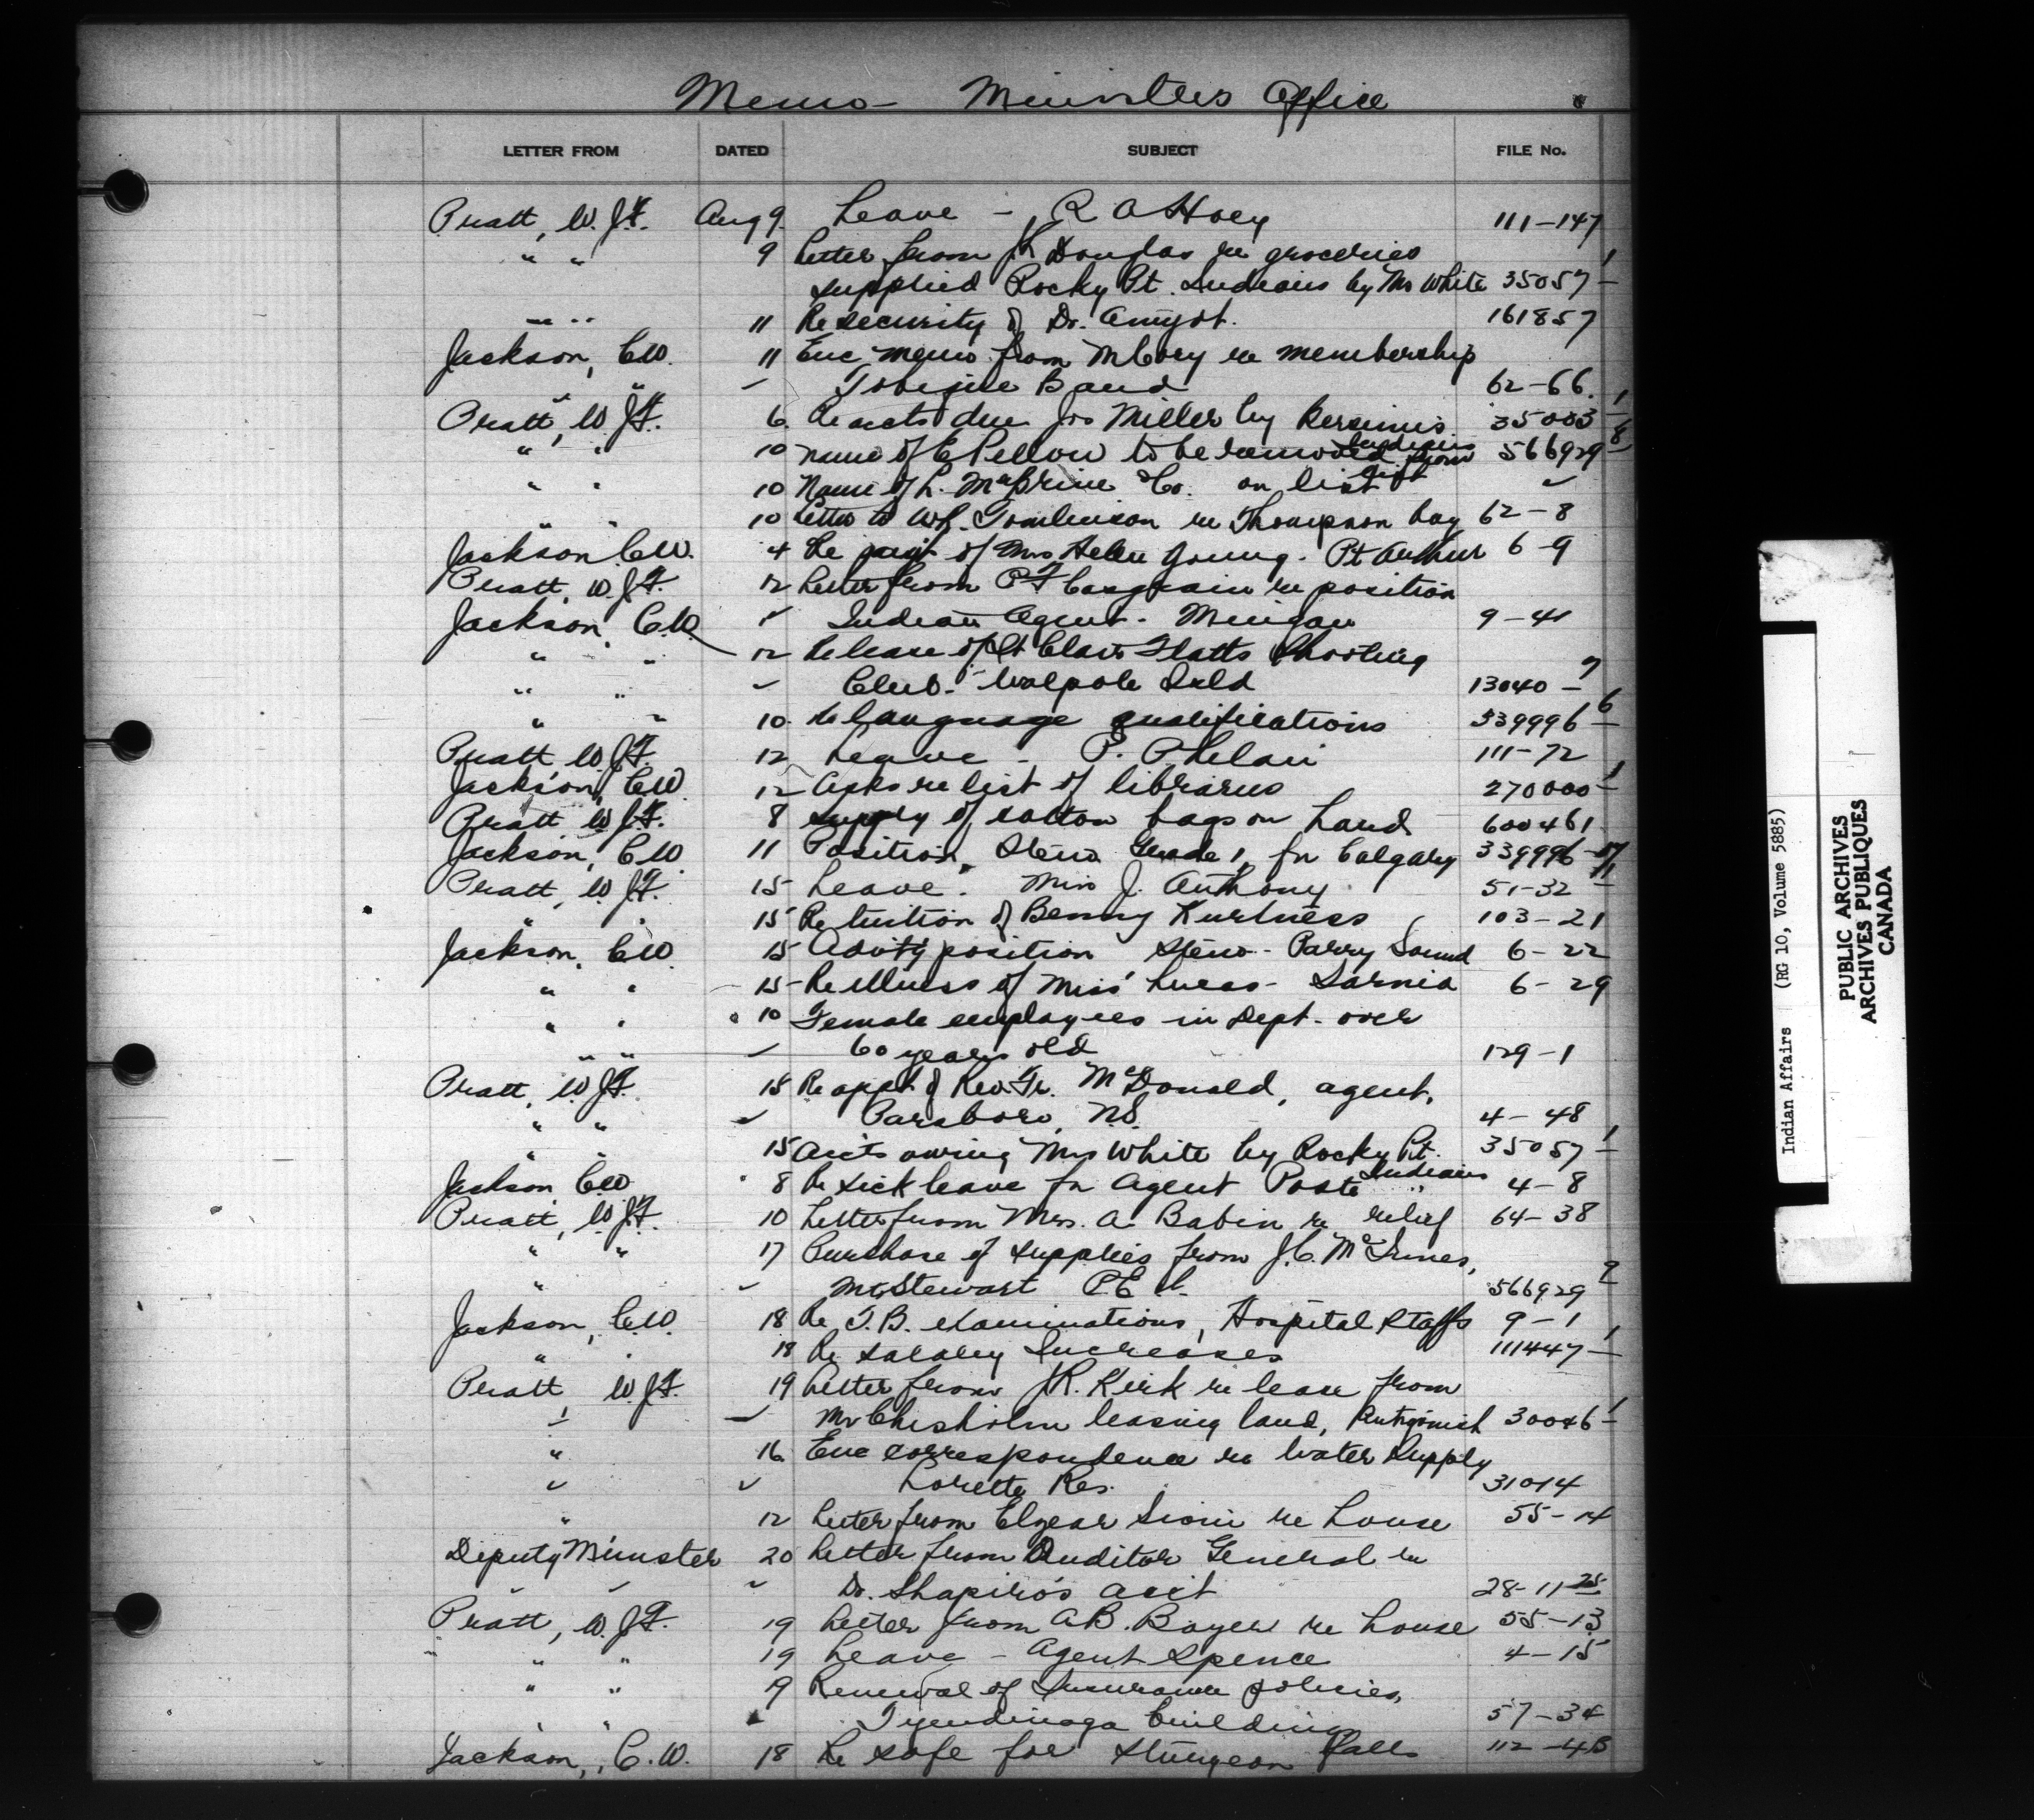 Memo - Ministers Office
LETTER FROM DATED SUBJECT FILE No.
Pratt, W. J.F. Aug 9. Leave - R A Hoey 111-147
" " 9 Letter from Douglas re groceries 1
supplied Rocky Pt. Indians by Mr White 35057 -
" " 11 Re security of Dr. Amyot. 161857
Jackson, C.W. 11 Enc memo from re membership
" Tobique Band 62-66.
Pratt, W. J.F. 6. Re accts due Jos Miller by 35003 - 1
" " 10 name of E Pellow to be removed from Indians list 566929 - 8
" " 10 Name of L. McBrine & Co. on list "
" " 10 Letter to W.R. Tomlinson re Thompson boy 62-8
Jackson C.W. 4 Re of Mrs Helen Young. Pt Arthur 6-9
Pratt, W. J.F. 12 Letter from P.F. Casgrain re position
Jackson, C.W. " Indian Agent - Mingan 9-41
" " 12 Release of St Clair Flatts Shooting
" " " Club - Walpole Isld 13040 - 7
" " 10. Re language qualifications 339996 - 6
Pratt W. J.F. 12 Leave - P. Phelan 111-72
Jackson, C.W. 12 Asks re list of libraries 270000 - 1
Pratt W. J.F. 8 supply of cotton bags on hand 600461
Jackson, C.W. 11 Position, Steno Grade 1, for Calgary 339996 - 17
Pratt, W. J.F. 15 Leave. Miss J. Anthony 51-32 - 11
" " 15 Re tuition of Benny Kurtness 103-21
Jackson, C.W. 15 position Steno - Parry Sound 6-22
" " 15 Re illness of Miss Lucas - Sarnia 6-29
" " 10 Female employees in Dept. over
" " " 60 years old 129-1
Pratt, W. J.F. 15 Re appt of Rev. Fr. McDonald, agent,
" " " Parsboro, N.S. 4-48
" " 15 accts owing Mrs White by Rocky Pt. Indians 35057 - 1
Jackson C.W. 8 Re sick leave for Agent Poste " 4-8
Pratt, W. J.F. 10 Letter from Mrs. A. Babin re relief 64-38
" " 17 Purchase of supplies from J.C. McInnes,
" " Mt Stewart P.E.I. 566929 - 2
Jackson, C.W. 18 Re T.B. examinations, Hospital Staffs 9-1
" " 18 Re salary Increases 111447 - 1
Pratt, W. J.F. 19 Letter from J.R. Kirk re lease from
" " Mr Chisholm leasing land, Antigonish 30046 - 1
" 16 Enc correspondence re Water Supply
" " Lorette Res. 31014
" 12 Letter from Elzear Sioui re house 55-14
Deputy Minister 20 Letter from Auditor General re
" " " Dr. Shapiro's acct 28-11-25
Pratt, W. J.F. 19 Letter from A.B. Boyer re house 55-13
" " 19 Leave - Agent Spence 4-15
" " 9 Renewal of Insurance policies,
" " " Tyendinaga buildings 57-34
Jackson, C.W. 18 Re safe for Sturgeon Falls 112-4B
Indian Affairs (RG 10, Volume 5885)
PUBLIC ARCHIVES
ARCHIVES PUBLIQUES
CANADA